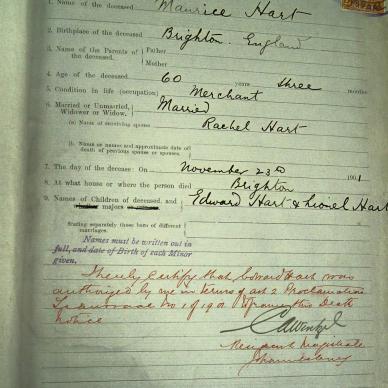 1. Name of the deceased Maurice Hart
2. Birthplace of the deceased Brighton. England
3. Names of the Parents of the deceased. Father
Mother
4. Age of the deceased 60 years three months
5. Condition in life (occupation) Merchant
6. Married or Unmarried, Widower or Widow, Married
(a) Name of surviving spouse Rachel Hart
(b) Name or names and approximate date of death of previous spouse or spouses.
7. The day of the decease: On November 23rd 1901
8. At what house or where the person died Brighton
9. Names of Children of deceased, and majors Edward Hart & Lionel Hart
Stating separately those born of different marriages.
Names must be written out in
full, and date of Birth of each Minor
given.
I hereby Certify that Edward Hart was
authorised by me in terms of art 2 Proclamation
Transvaal No. 1 of 190 to frame this Death
Notice
Resident Magistrate
Johannesburg